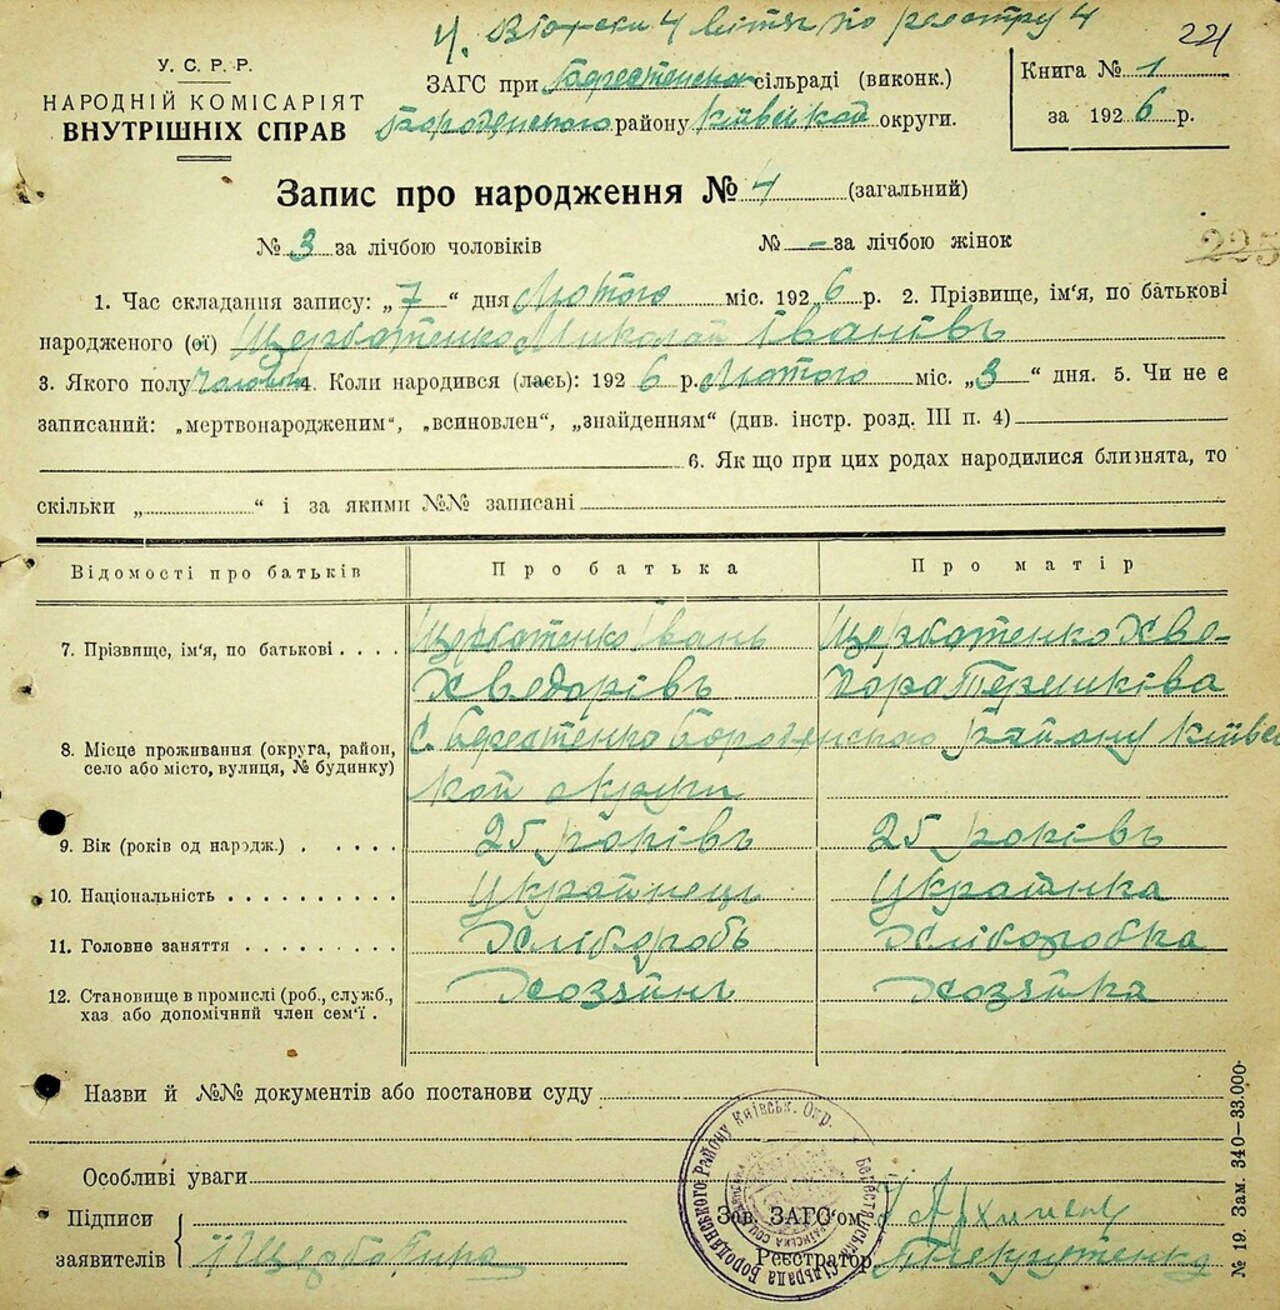 4 
221
У. С. Р. Р.
НАРОДНІЙ КОМІСАРІЯТ
ВНУТРІШНІХ СПРАВ
ЗАГС при Берестенско сільраді (виконк.)
Бородянского району Київской округи.
Книга № 1
за 1926 р.
Запис про народження № 4 (загальний)
№ 3 за лічбою чоловіків № - за лічбою жінок
225
1. Час складання запису: „7“ дня Лютого міс. 1926 р. 2. Прізвище, ім'я, по батькові
народженого (ої) Щербатенко Миколай Іванівъ
3. Якого полу Чоловік 4. Коли народився (лась): 1926 р. Лютого міс. „3“ дня. 5. Чи не є
записаний: „мертвонародженим“, „всиновлен“, „знайденням“ (див. інстр. розд. III п. 4)
6. Як що при цих родах народилися близнята, то
скільки „ “ і за якими №№ записані
Відомості про батьків Про батька Про матір
7. Прізвище, ім'я, по батькові Щербатенко Івань Щербатенко Хве-
Хведорівъ дора Терешківа
8. Місце проживання (округа, район, село або місто, вулиця, № будинку) с. Берестенко Бороденскаго району Київс
кой округи
9. Вік (років од народж.) 25 роківъ 25 роківъ
10. Національність Украйнець Украинка
11. Головне заняття Хліборобь Хліборобка
12. Становище в промислі (роб., служб., хаз або допомічний член сем'ї. Хозяйнь Хозяйка
Назви й №№ документів або постанови суду
Особливі уваги
Підписи
заявителів Щербатина
Зав. ЗАГС'ом Архипенк
Реєстратор
Бородянського Району Київськ. Окр.
№ 19. Зам. 340—33.000